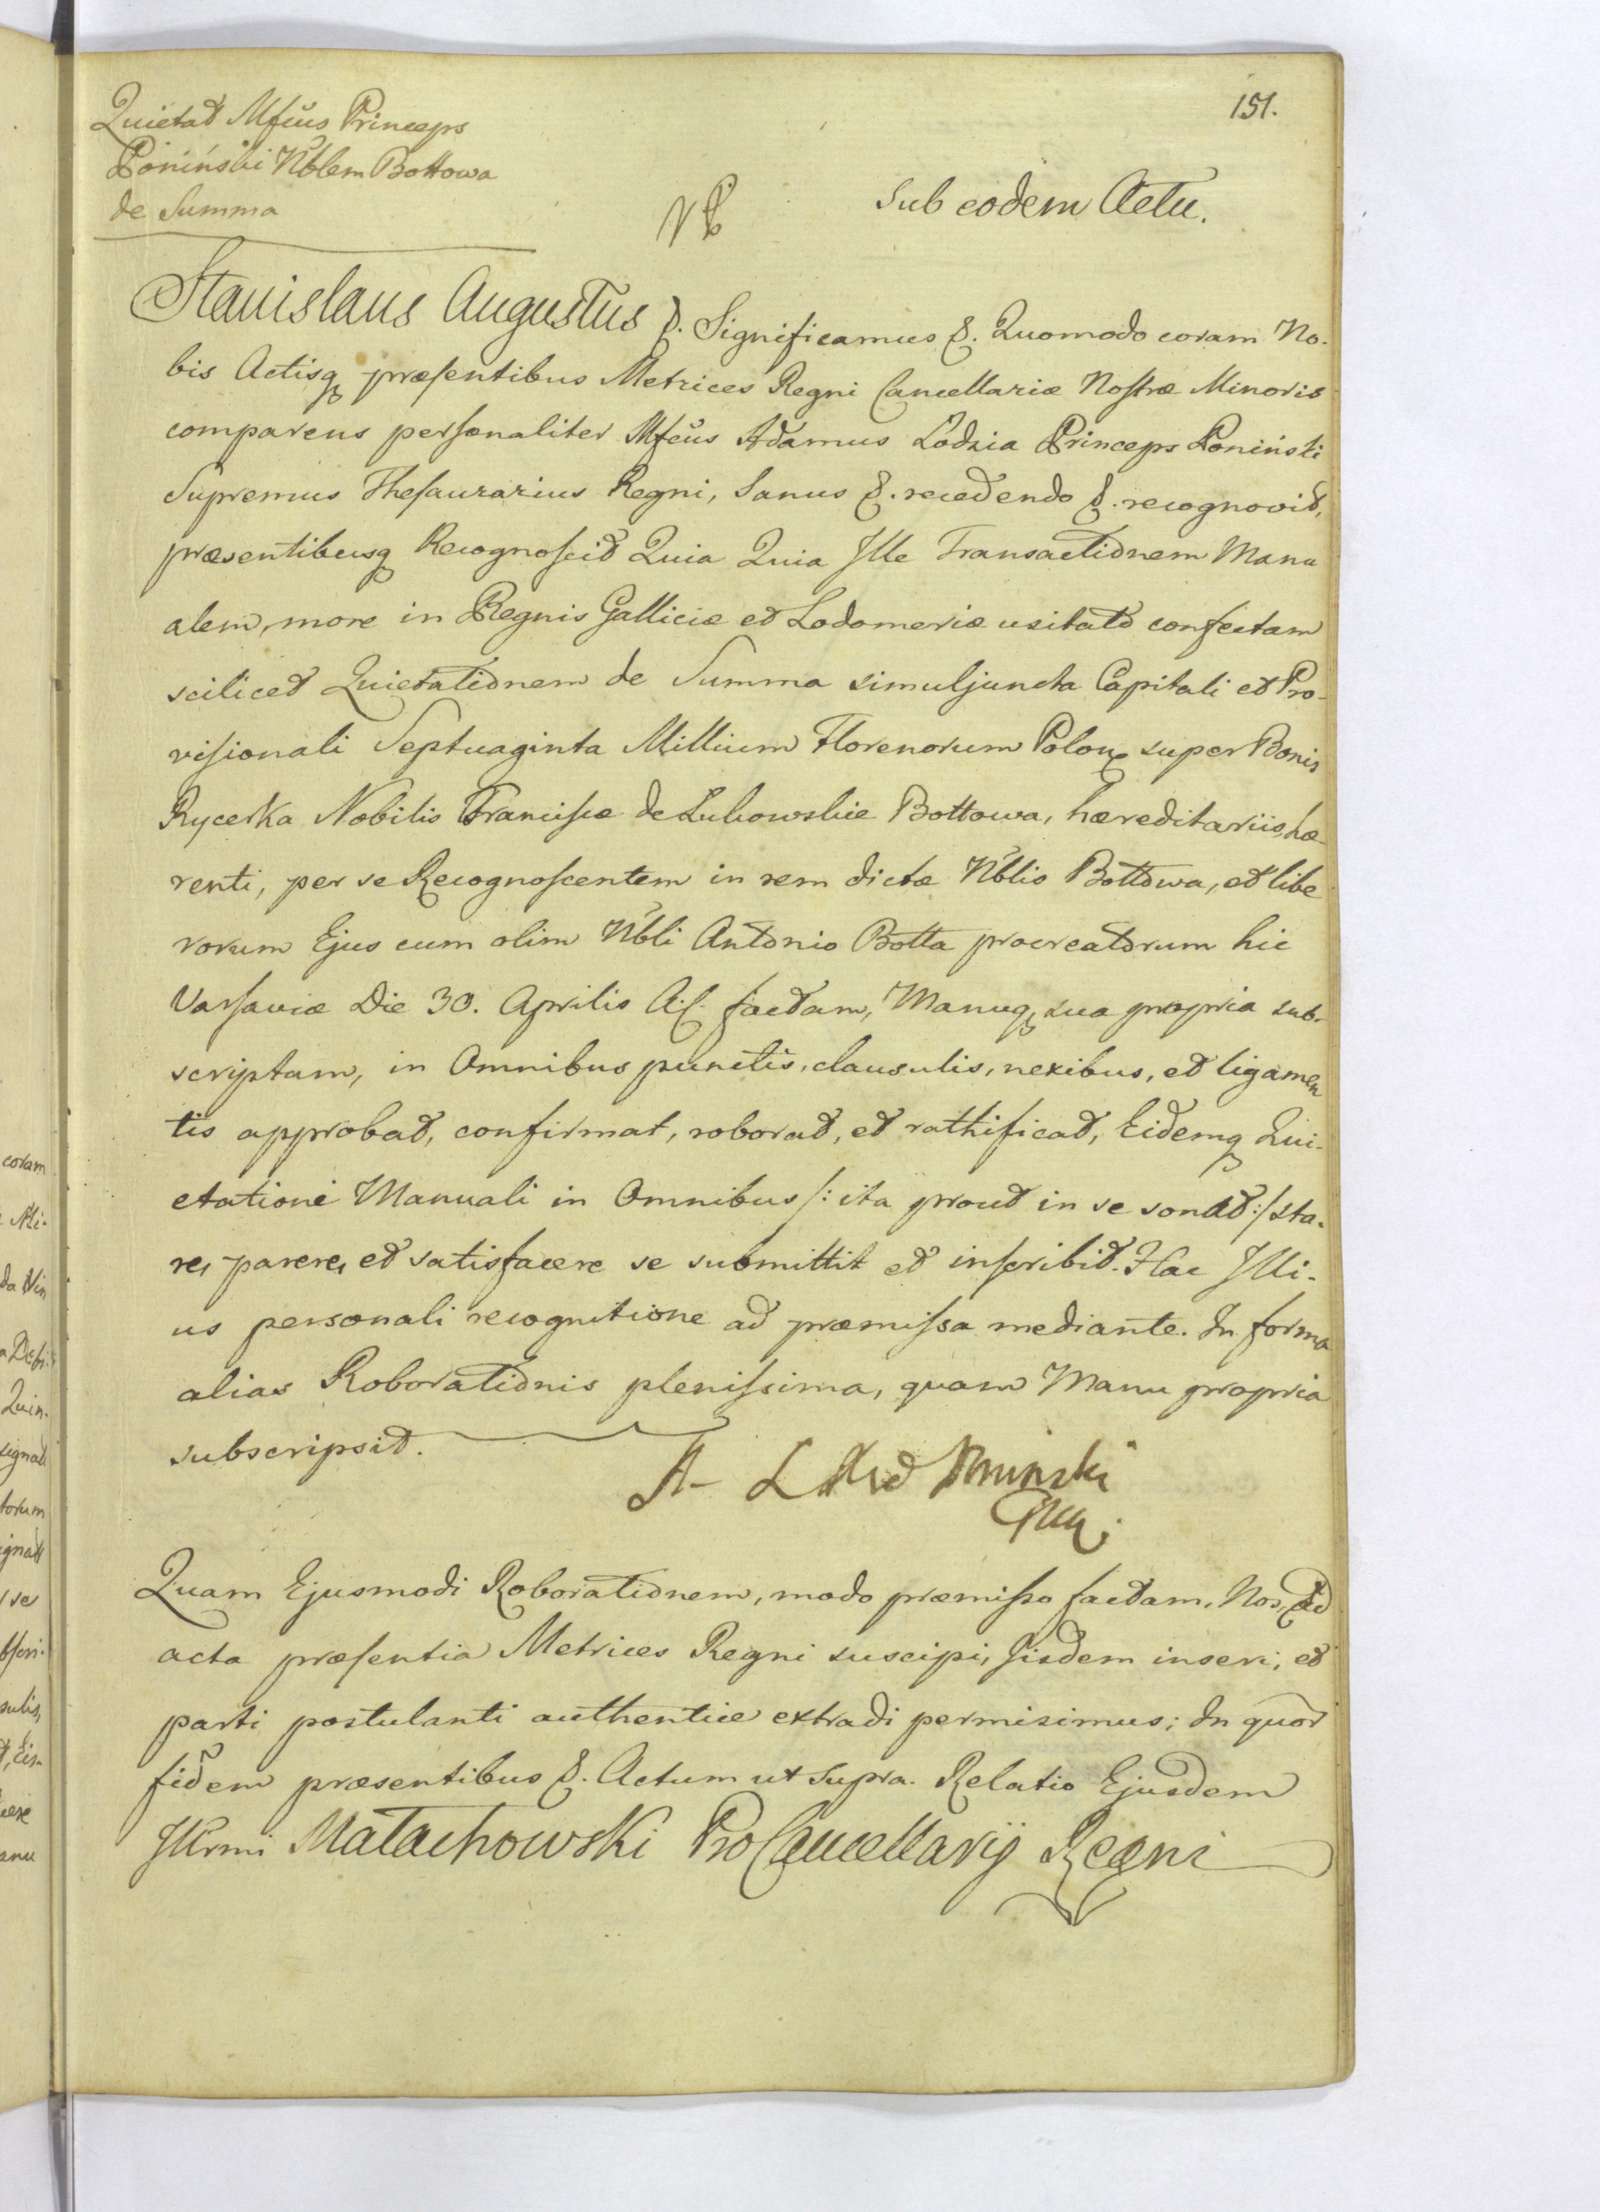 151.
Quietat Mfcus Princeps
Poniński Nblem Bottowa
de Summa
Sub eodem Actu.
Stanislaus Augustus &. Significamus &. Quomodo coram No-
bis Actisq præsentibus Metrices Regni Cancellariæ Nostræ Minoris
comparens personaliter Mfcus Adamus Lodzia Princeps Poniński
Supremus Thesaurarius Regni, Sanus &. recedendo &. recognovit,
præsentibusq Recognoscit Quia Quia Ille Transactionem Manu
alem, more in Regnis Galliciæ et Lodomeriæ usitato confectam
scilicet Quietationem de Summa simuljuncta Capitali et Pro-
visionali Septuaginta Millium Florenorum Polon super Bonis
Rycerka Nobilis Franciscæ de Lukowskie Bottowa, hæreditariis, hæ-
renti, per se Recognoscentem in rem dictæ Nblis Bottowa, et libe
rorum Ejus cum olim Nbli Antonio Botta procreatorum hic
Varsaviæ Die 30. Aprilis A.C. factam, Manuq sua propria sub-
scriptam, in Omnibus punctis, clausulis, nexibus, et ligamen
tis approbat, confirmat, roborat, et rathificat, Eidemq Qui-
etationi Manuali in Omnibus /: ita prout in se sonat :/ sta-
re, parere, et satisfacere se submittit et inscribit. Hac Illi-
us personali recognitione ad præmissa mediante. In forma
alias Roborationis plenissima, quam Manu propria
subscripsit.
A L Poninski
Quam Ejusmodi Roborationem, modo præmisso factam, Nos, ad
acta præsentia Metrices Regni suscipi, Iisdem inseri, et
parti postulanti authentice extradi permisimus; In quor
fidem præsentibus &. Actum ut supra. Relatio Ejusdem
Illrmi Małachowski ProCancellarij Regni